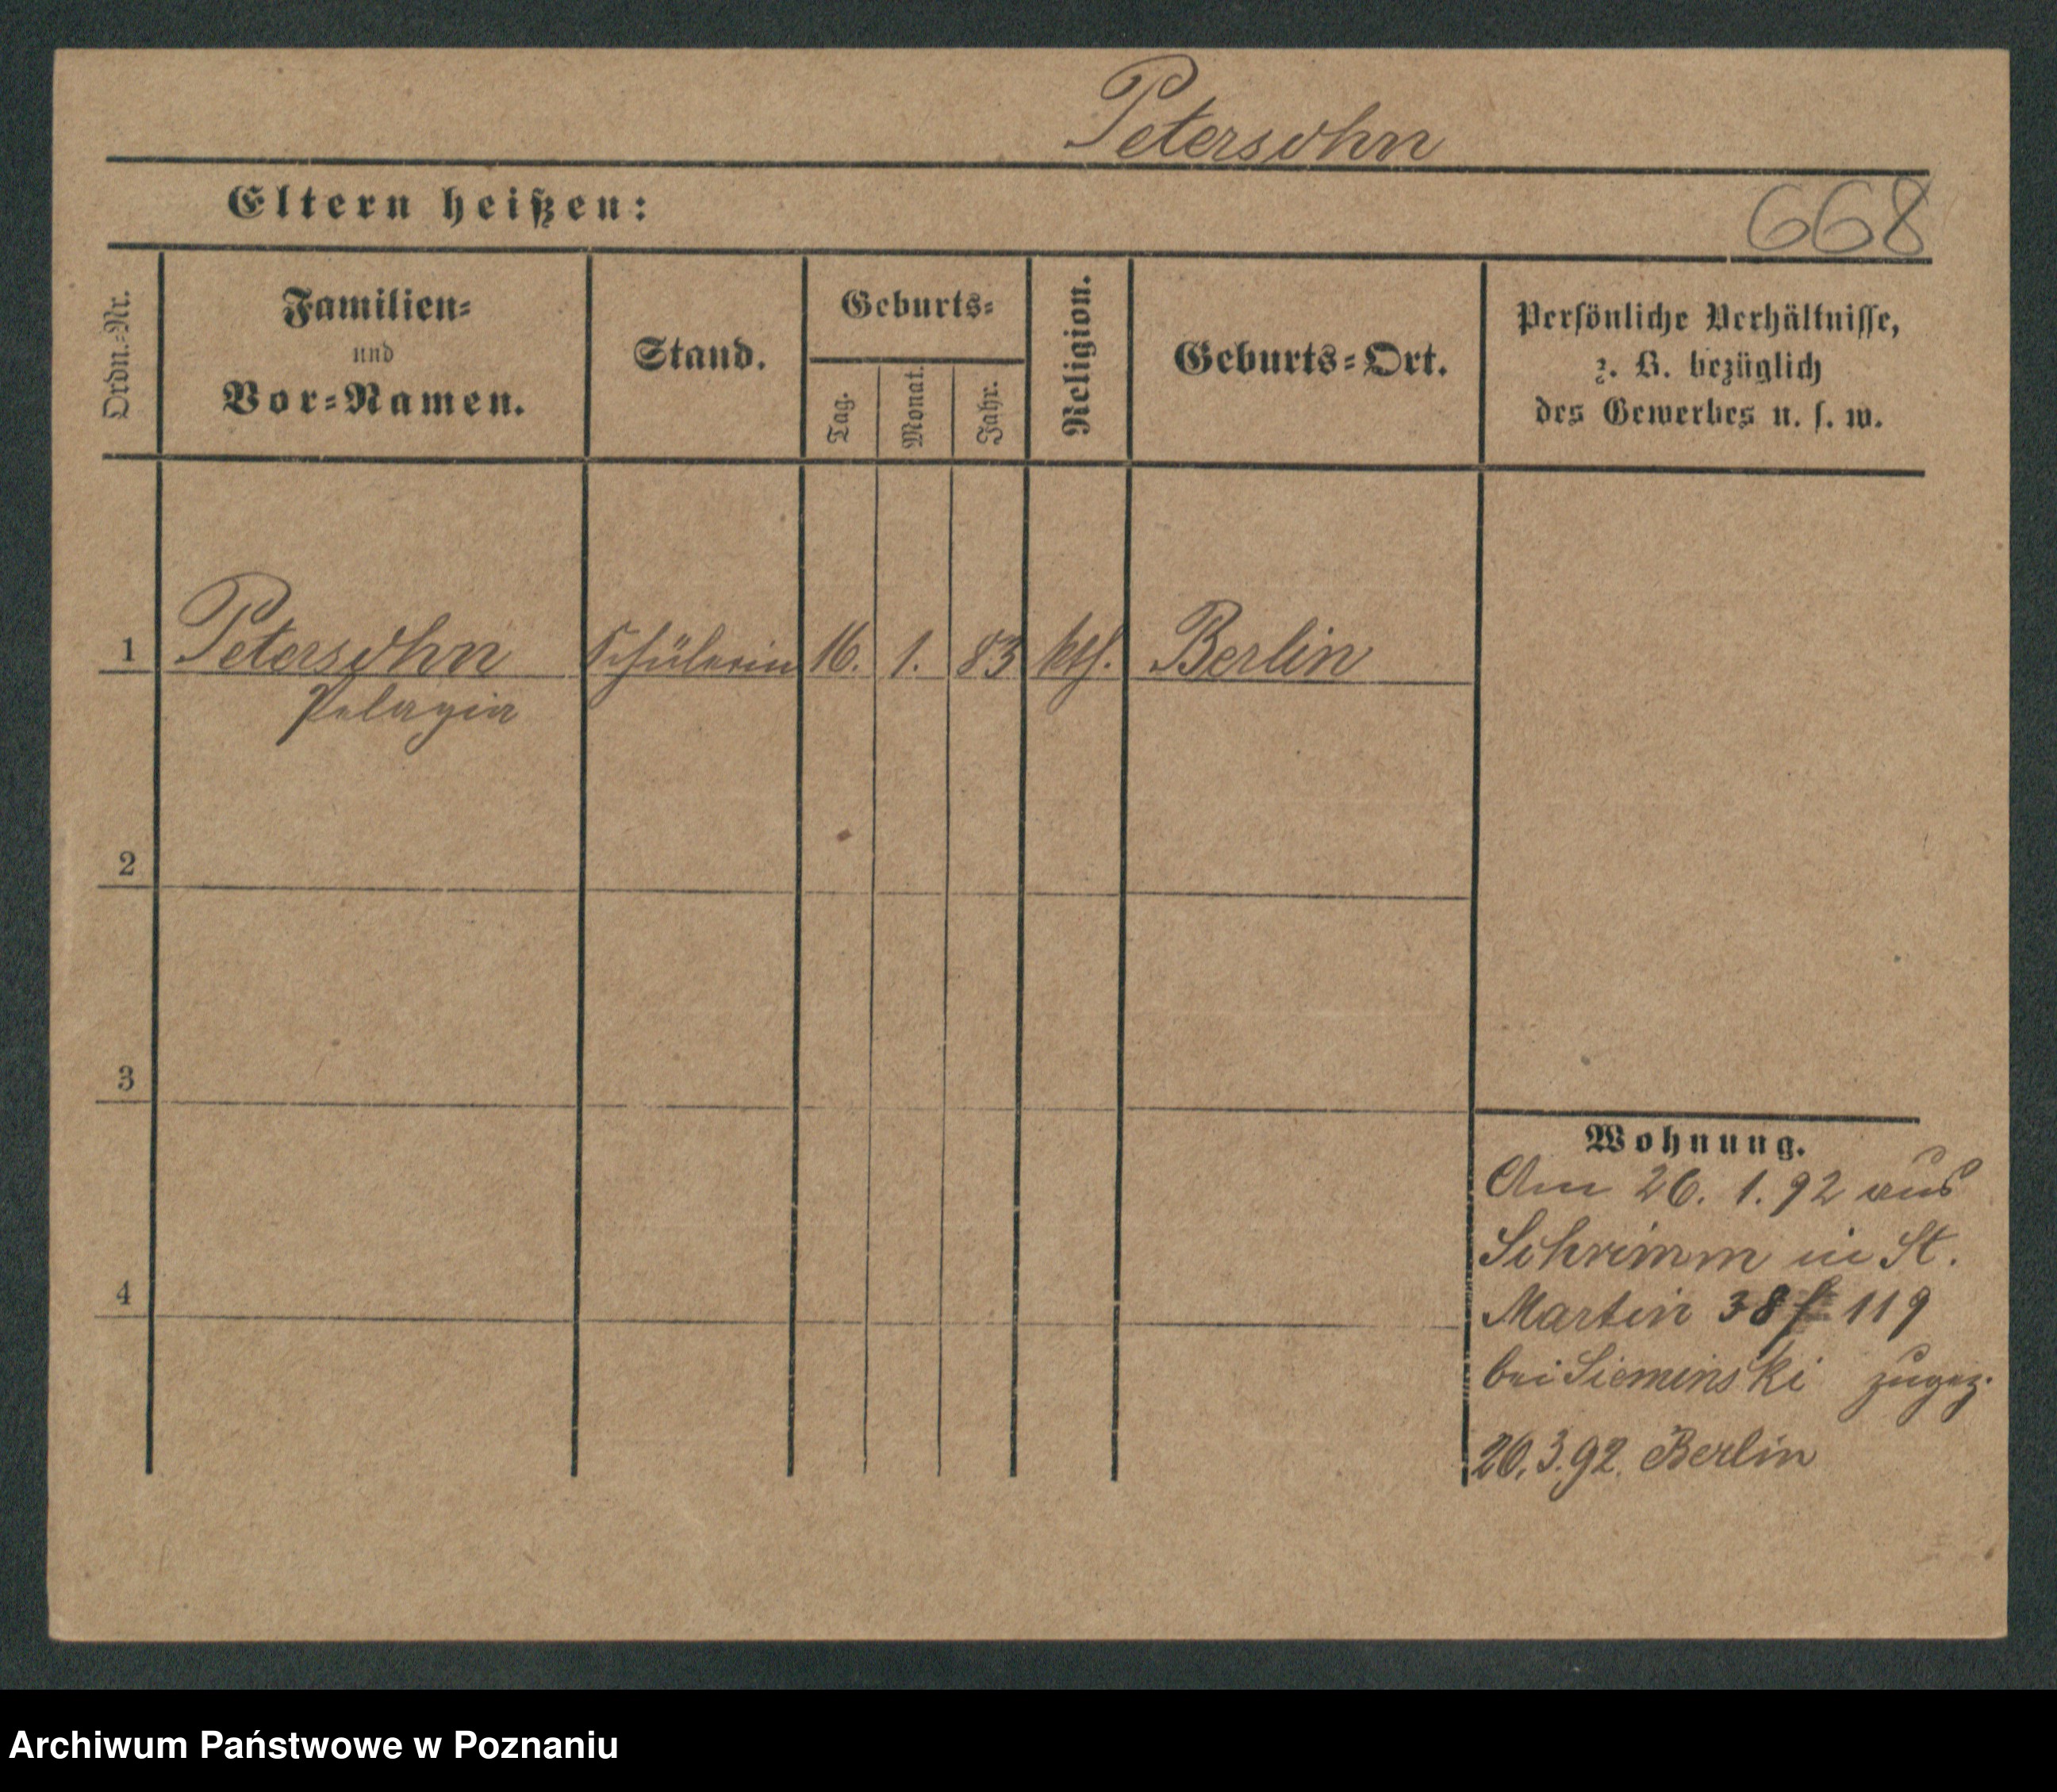 Petersohn
Eltern heißen:
668
Ordn.-Nr.
Familien-
und
Vor-Namen.
Stand.
Geburts-
Tag.
Monat.
Jahr.
Religion.
Geburts-Ort.
Persönliche Verhältnisse,
z. B. bezüglich
des Gewerbes u. s. w.
1 Petersohn Schülerin 16. 1. 83 kth. Berlin
Pelagia
2
3
4
Wohnung.
Am 26. 1. 92 aus
Schrimm in St.
Martin 38 119
bei Sieminski zugez.
26.3.92. Berlin
Archiwum Państwowe w Poznaniu